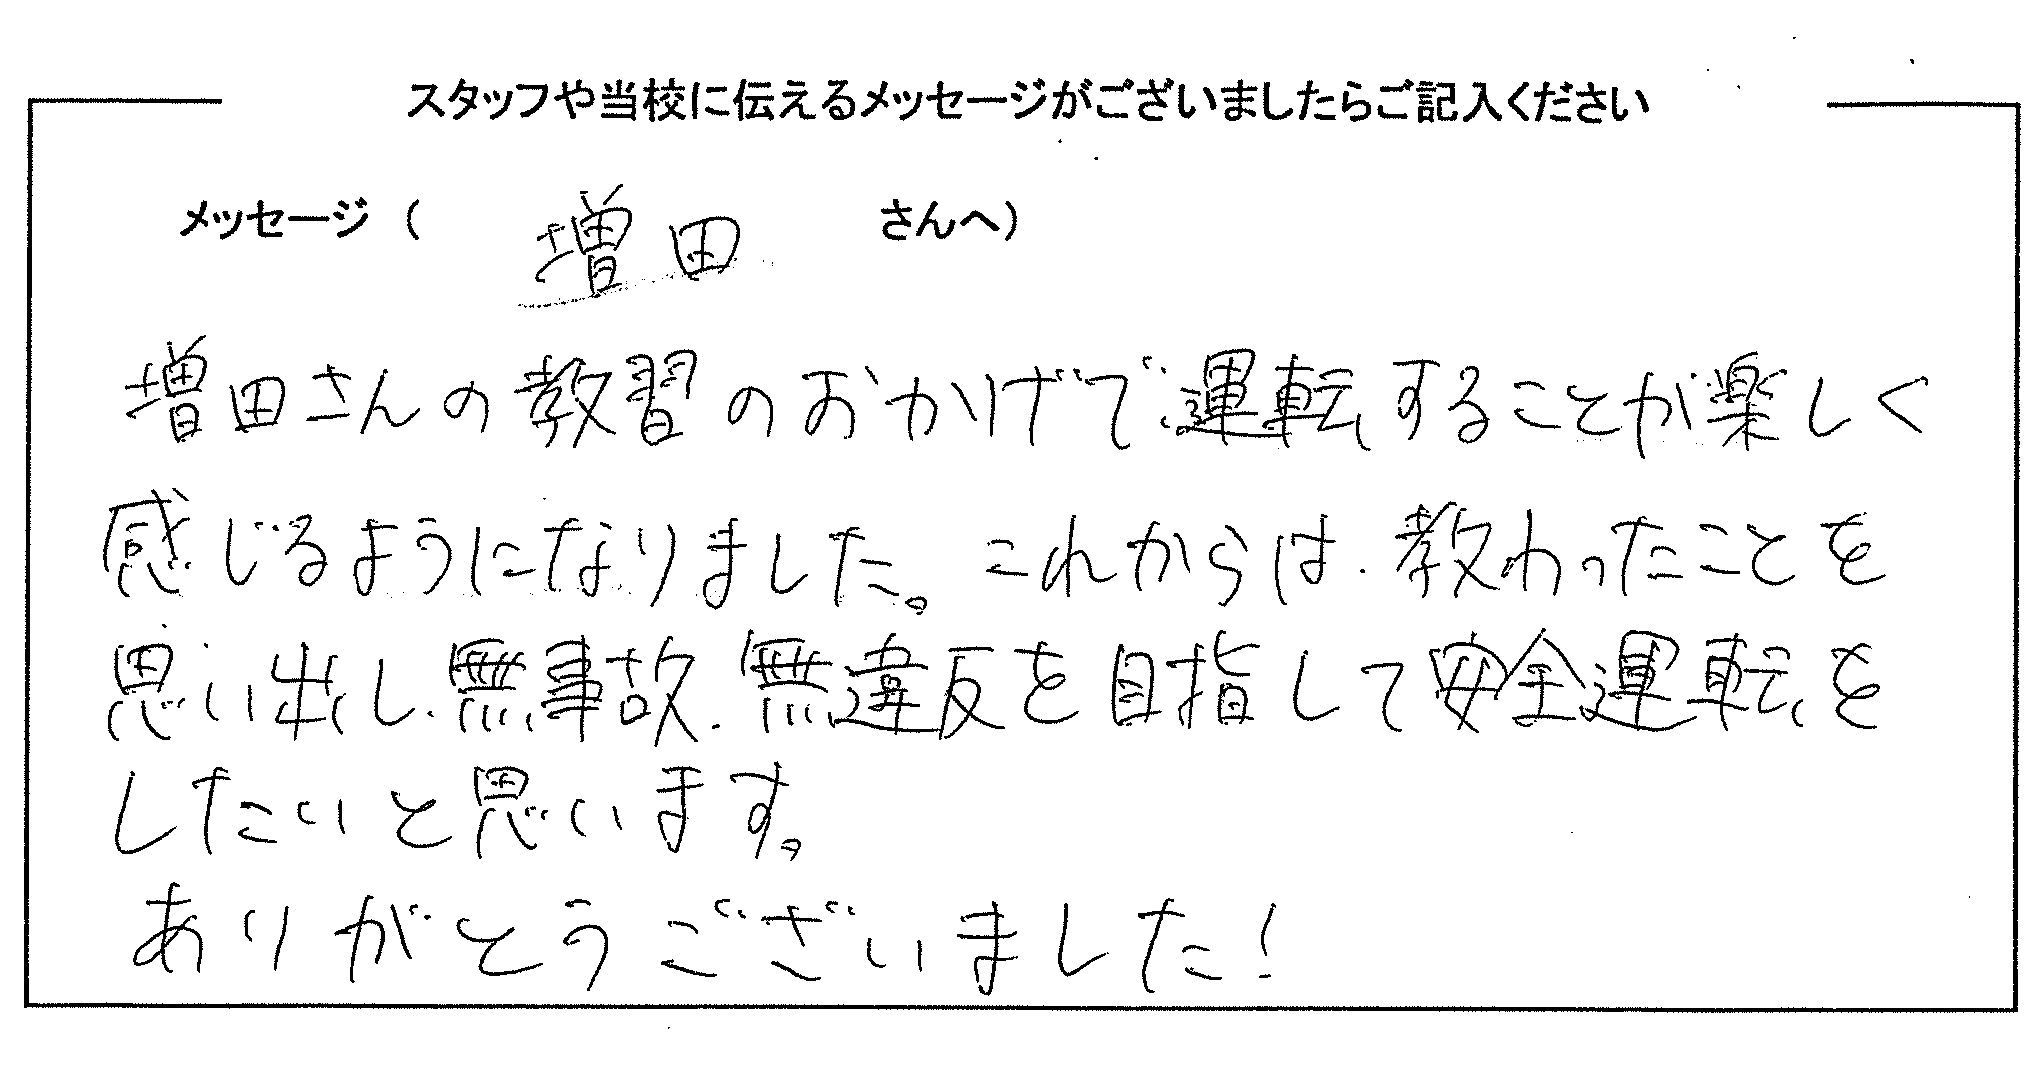 スタッフや当校に伝えるメッセージがございましたらご記入ください
メッセージ( 増田 さんへ)
増田さんの教習のおかげで、運転することが楽しく
感じるようになりました。これからは、教わったことを
思い出し、無事故、無違反を目指して安全運転を
したいと思います。
ありがとうございました!